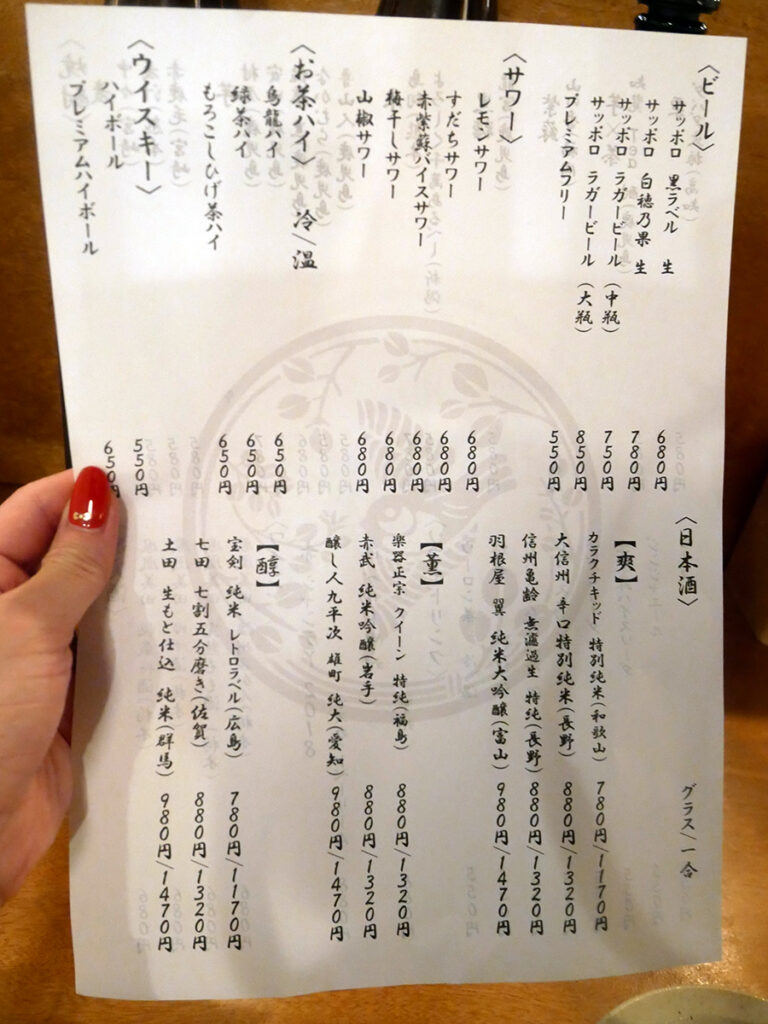 〈ビール〉
サッポロ 黒ラベル 生 680円
サッポロ 白穂乃果 生 780円
サッポロ ラガービール (中瓶) 750円
サッポロ ラガービール (大瓶) 850円
プレミアムフリー 550円
〈サワー〉
レモンサワー 680円
すだちサワー 680円
赤紫蘇バイスサワー 680円
梅干しサワー 680円
山椒サワー 680円
〈お茶ハイ〉 冷/温
烏龍ハイ 650円
緑茶ハイ 650円
もろこしひげ茶ハイ 650円
〈ウイスキー〉
ハイボール 550円
プレミアムハイボール 650円
〈日本酒〉 グラス/一合
【爽】
カラクチキッド 特別純米(和歌山) 780円/1170円
大信州 辛口特別純米(長野) 880円/1320円
信州亀齢 無濾過生 特純(長野) 880円/1320円
羽根屋 翼 純米大吟醸(富山) 980円/1470円
【薫】
楽器正宗 クイーン 特純(福島) 880円/1320円
赤武 純米吟醸(岩手) 880円/1320円
醸し人九平次 雄町 純大(愛知) 980円/1470円
【醇】
宝剣 純米 レトロラベル(広島) 780円/1170円
七田 七割五分磨き(佐賀) 880円/1320円
土田 生もと仕込 純米(群馬) 980円/1470円